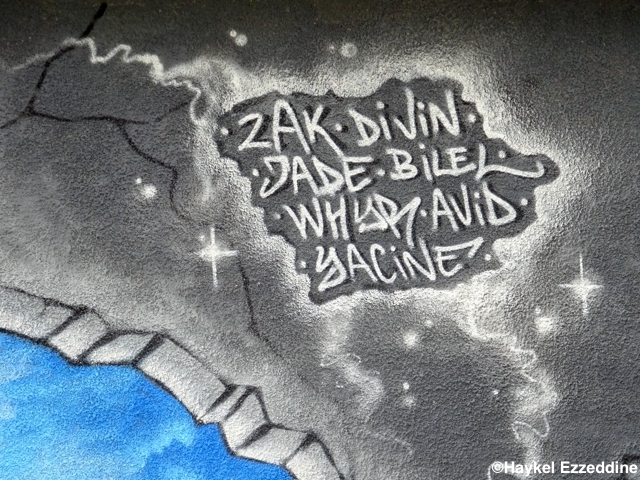 ZAK · DiViN ·
· JADE · BiLEL ·
· WHYR · AViD ·
· YACiNE ·
©Haykel Ezzeddine